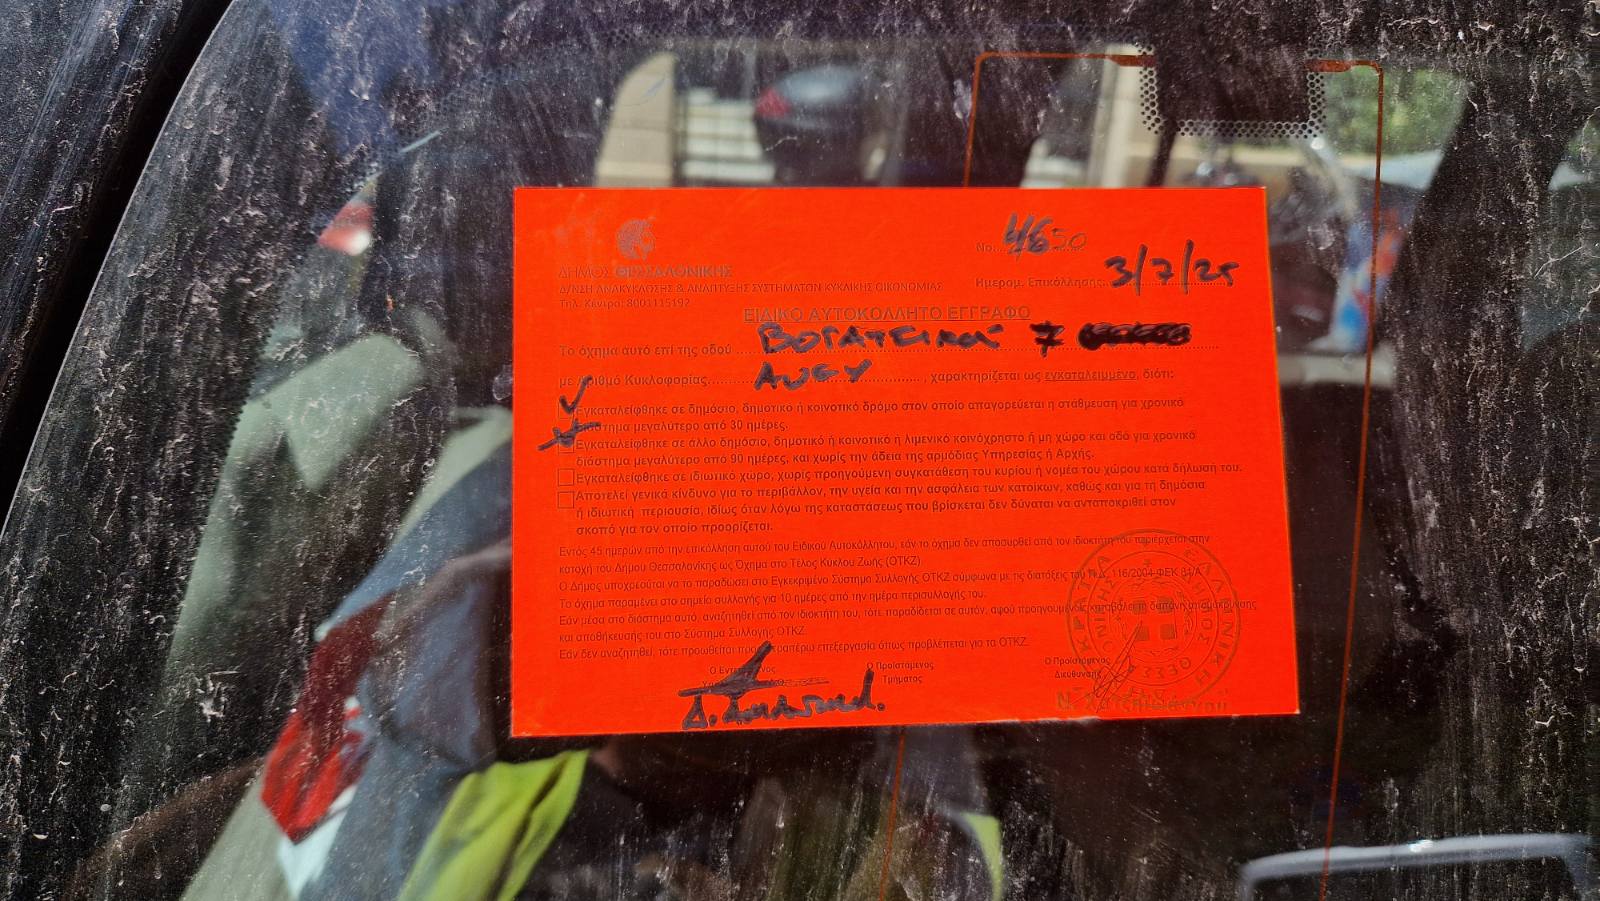 Νο. 4650
ΔΗΜΟΣ ΘΕΣΣΑΛΟΝΙΚΗΣ
Ημερομ. Επικόλλησης: 3/7/25
Δ/ΝΣΗ ΑΝΑΚΥΚΛΩΣΗΣ & ΑΝΑΠΤΥΞΗΣ ΣΥΣΤΗΜΑΤΩΝ ΚΥΚΛΙΚΗΣ ΟΙΚΟΝΟΜΙΑΣ
Τηλ. Κέντρο: 8001115192
ΕΙΔΙΚΟ ΑΥΤΟΚΟΛΛΗΤΟ ΕΓΓΡΑΦΟ
Το όχημα αυτό επί της οδού 7
με Αριθμό Κυκλοφορίας , χαρακτηρίζεται ως εγκαταλειμμένο, διότι:
Εγκαταλείφθηκε σε δημόσιο, δημοτικό ή κοινοτικό δρόμο στον οποίο απαγορεύεται η στάθμευση για χρονικό
διάστημα μεγαλύτερο από 30 ημέρες.
Εγκαταλείφθηκε σε άλλο δημόσιο, δημοτικό ή κοινοτικό ή λιμενικό κοινόχρηστο ή μη χώρο και οδό για χρονικό
διάστημα μεγαλύτερο από 90 ημέρες, και χωρίς την άδεια της αρμόδιας Υπηρεσίας ή Αρχής.
Εγκαταλείφθηκε σε ιδιωτικό χώρο, χωρίς προηγούμενη συγκατάθεση του κυρίου ή νομέα του χώρου κατά δήλωσή του.
Αποτελεί γενικά κίνδυνο για το περιβάλλον, την υγεία και την ασφάλεια των κατοίκων, καθώς και για τη δημόσια
ή ιδιωτική περιουσία, ιδίως όταν λόγω της καταστάσεως που βρίσκεται δεν δύναται να ανταποκριθεί στον
σκοπό για τον οποίο προορίζεται.
Εντός 45 ημερών από την επικόλληση αυτού του Ειδικού Αυτοκόλλητου, εάν το όχημα δεν αποσυρθεί από τον ιδιοκτήτη του περιέρχεται στην
κατοχή του Δήμου Θεσσαλονίκης ως Όχημα στο Τέλος Κύκλου Ζωής (ΟΤΚΖ)
Ο Δήμος υποχρεούται να το παραδώσει στο Εγκεκριμένο Σύστημα Συλλογής ΟΤΚΖ σύμφωνα με τις διατάξεις του Π.Δ. 116/2004 ΦΕΚ 81/Α
Το όχημα παραμένει στο σημείο συλλογής για 10 ημέρες από την ημέρα περισυλλογής του.
Εάν μέσα στο διάστημα αυτό, αναζητηθεί από τον ιδιοκτήτη του, τότε παραδίδεται σε αυτόν, αφού προηγουμένως καταβάλει τη δαπάνη απομάκρυνσης
και αποθήκευσής του στο Σύστημα Συλλογής ΟΤΚΖ.
Εάν δεν αναζητηθεί, τότε προωθείται προς περαιτέρω επεξεργασία όπως προβλέπεται για τα ΟΤΚΖ.
Ο Προϊστάμενος
Τμήματος
Ο Προϊστάμενος
Διεύθυνσης